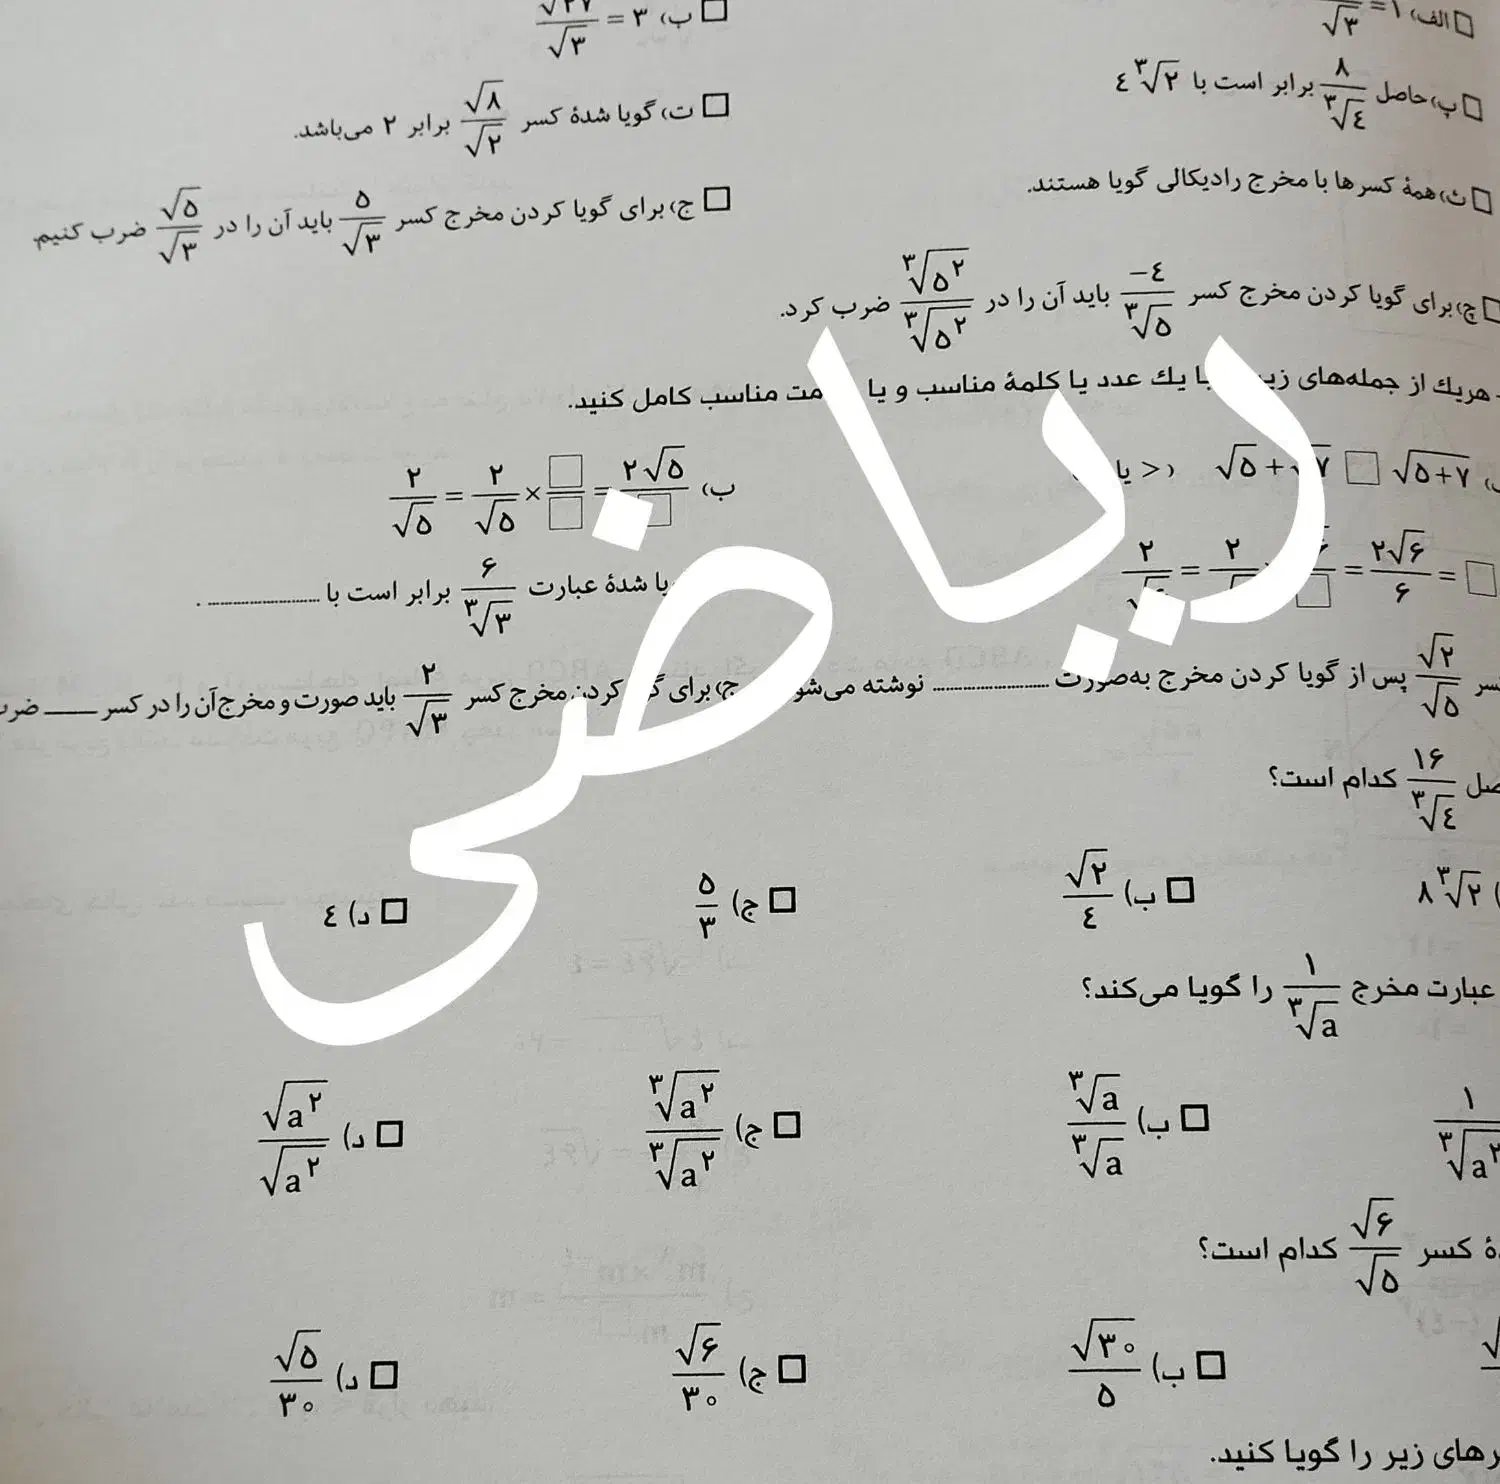 □ الف) ۱ = √۳
□ ب) ۳ = √۲۷/√۳
□ پ) حاصل ۸/∛۴ برابر است با ۴∛۲
□ ت) گویا شدهٔ کسر √۸/√۲ برابر ۲ می‌باشد.
□ ث) همهٔ کسرها با مخرج رادیکالی گویا هستند.
□ ج) برای گویا کردن مخرج کسر ۵/√۳ باید آن را در √۵/√۳ ضرب کنیم.
□ چ) برای گویا کردن مخرج کسر -۴/∛۵ باید آن را در ∛۵²/∛۵² ضرب کرد.
هریك از جمله‌های یا یك عدد یا کلمهٔ مناسب و یا مناسب کامل کنید.
√(۵+۷) □ √۵+√۷ (< یا
ب) ۲/√۵ = ۲/√۵ × □/□ = ۲√۵/□
= ۲√۶/۶ = □
شدهٔ عبارت ۶/∛۳ برابر است با ............ .
√۲/√۵ پس از گویا کردن مخرج به‌صورت ............ نوشته
ج) برای کردن مخرج کسر ۲/√۳ باید صورت و مخرج آن را در کسر ____
۱۶/∛۴ کدام است؟
۸∛۲ □ ب) √۲/۴ □ ج) ۵/۳ □ د) ۴
عبارت مخرج ۱/∛a را گویا می‌کند؟
۱/∛a² □ ب) ∛a/∛a □ ج) ∛a²/∛a² □ د) √a²/√a²
کسر √۶/√۵ کدام است؟
□ ب) √۳۰/۵ □ ج) √۶/۳۰ □ د) √۵/۳۰
زیر را گویا کنید.
ریاضی